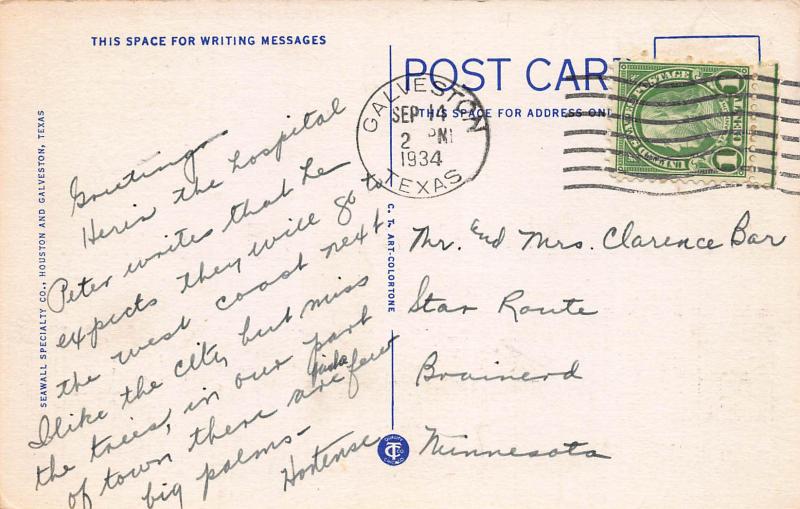 THIS SPACE FOR WRITING MESSAGES
SEAWALL SPECIALTY CO., HOUSTON AND GALVESTON, TEXAS
Greetings
Heris the hospital
Peter writes that he
expects they will go to
the west coast next
I like the city but miss
the trees, in our part
of town there are few
big palms-
Hortense
C. T. ART-COLORTONE
POST CARD
THIS SPACE FOR ADDRESS ONLY
GALVESTON
SEP 14
2 PM
1934
TEXAS
Mr. End Mrs. Clarence Bar
Star Route
Brainerd
Minnesota